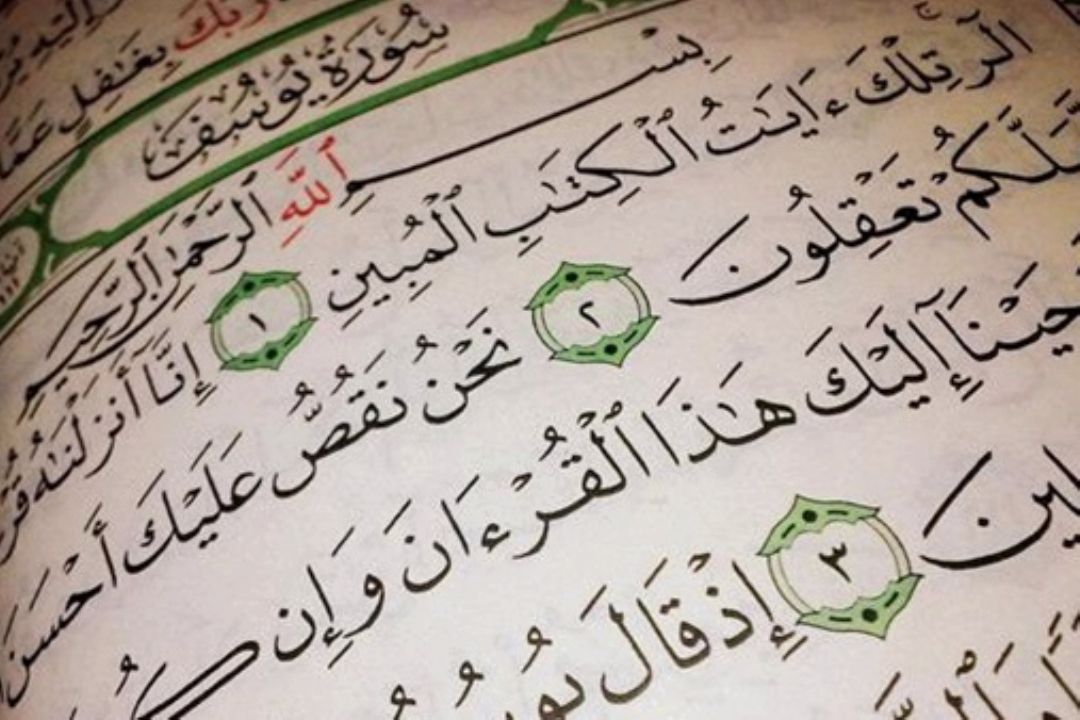 رَبُّكَ بِغَٰفِلٍ عَمَّا
سُورَةُ يُوسُفَ
بِسْمِ ٱللَّهِ ٱلرَّحْمَٰنِ ٱلرَّحِيمِ
الٓر تِلْكَ ءَايَٰتُ ٱلْكِتَٰبِ ٱلْمُبِينِ ١ إِنَّآ أَنزَلْنَٰهُ قُرْ
لَّعَلَّكُمْ تَعْقِلُونَ ٢ نَحْنُ نَقُصُّ عَلَيْكَ أَحْسَنَ
حَيْنَآ إِلَيْكَ هَٰذَا ٱلْقُرْءَانَ وَإِن كُ
لِينَ ٣ إِذْ قَالَ يُوسُ